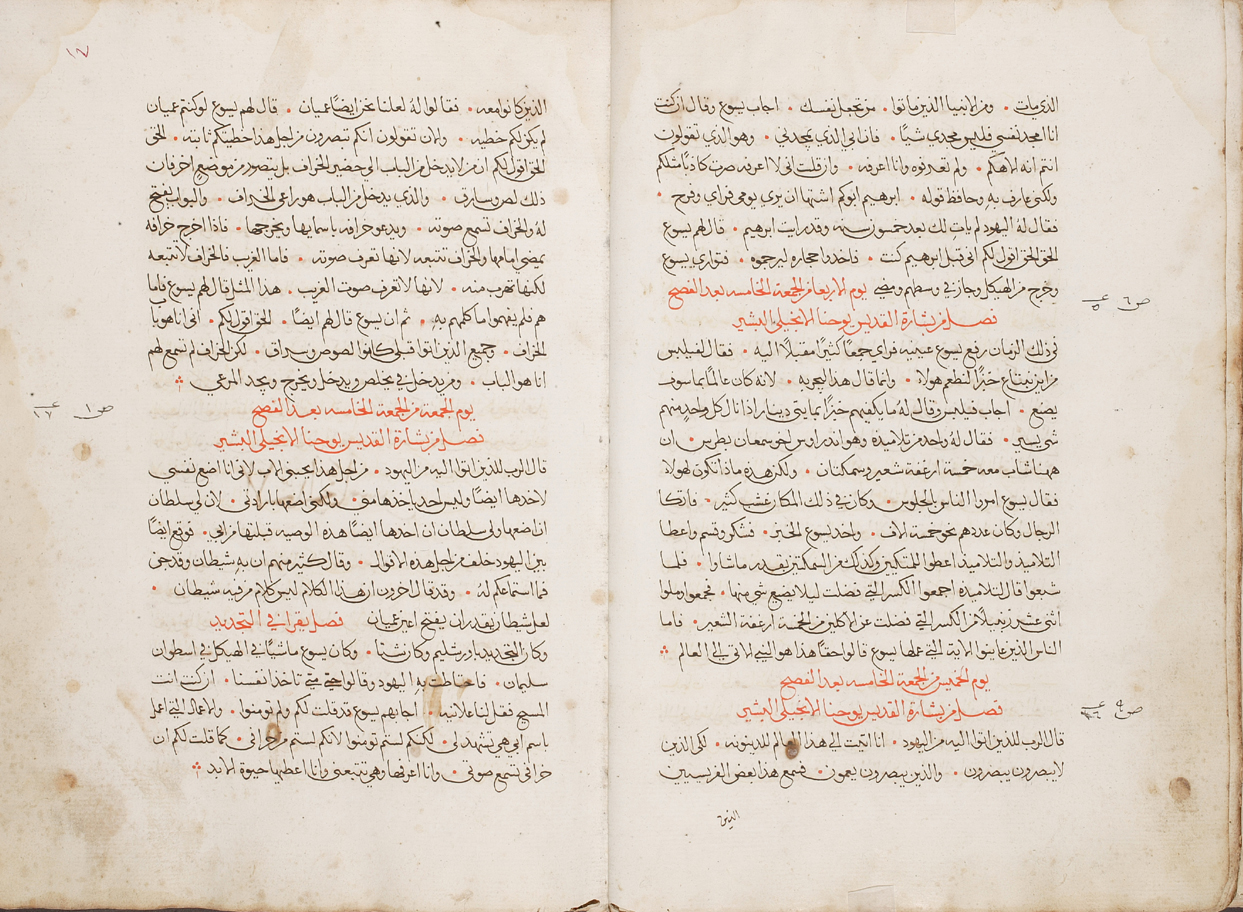 الذي مات . ومن الانبيا الذين ماتوا . من تجعل نفسك . اجاب يسوع وقال ان كنت
انا امجد نفسي فليس مجدي شيًا . فان ابي الذي يمجدني . وهو الذي تقولون
انتم انه الاهكم . ولم تعرفوه وانا اعرفه . وان قلت اني لا اعرفه صرت كاذبًا مثلكم
ولكني عارف به وحافظ قوله . ابرهيم ابوكم اشتها ان يري يومي فراي وفرح .
فقال لهُ اليهود لم يات لك بعد خمسون سنه وقد رايت ابرهيم . قال لهم يسوع
الحق الحق اقول لكم اني قبل ابرهيم كنت . فاخذوا حجاره ليرجموه . فتواري يسوع
وخرج من الهيكل وجاز في وسطهم ومضي يوم الاربعا من الجمعة الخامسه بعد الفصح
ص ٦
فصل من بشارة القديس يوحنا الانجيلي البشير
في ذلك الزمان رفع يسوع عينيه فراي جمعًا كثيرًا مقبلًا اليه . فقال لفيلبس
من اين نبتاع خبزًا لنطعم هولاء . وانما قال هذا ليجربه . لانه كان عالمًا بما سوف
يصنع . اجاب فيلبس وقال لهُ ما يكفيهم خبزًا بمايتي دينار اذا نال كل واحدٍ منهم
شي يسير . فقال لهُ واحد من تلاميذه وهو اندراوس اخو سمعان بطرس . ان
ههنا شاب معه خمسة ارغفة شعير وسمكتان . ولكن هذه ماذا تكون لهولا
فقال يسوع امروا الناس بالجلوس . وكان في ذلك المكان عشب كثير . فاتكا
الرجال وكان عددهم نحو خمسة الاف . واخذ يسوع الخبز . فشكر وقسم واعطا
التلاميذ والتلاميذ اعطوا المتكيين وكذلك من السمكتين بقدر ما شاوا . فلما
شبعوا قال لتلاميذه اجمعوا الكسر التي فضلت ليلا يضيع شي منها . فجمعوا وملوا
اثني عشر زنبيلًا من الكسر التي فضلت عن الاكلين من الخمسة ارغفة الشعير . فاما
الناس الذين عاينوا الاية التي عملها يسوع قالوا حقًا هذا هو النبي الاتي الي العالم
يوم الخميس من الجمعة الخامسه بعد الفصح
فصل من بشارة القديس يوحنا الانجيلي البشير
ص ٩
قال الرب للذين اتوا اليه من اليهود . انا اتيت الي هذا العالم للدينونه . لكي الذين
لا يبصرون يبصرون . والذين يبصرون يعمون . فسمع هذا بعض الفريسيين
الذين
١٧
الذين كانوا معه . فقالوا لهُ لعلنا نحن ايضًا عميان . قال لهم يسوع لو كنتم عميان
لم يكن لكم خطيه . والان تقولون انكم تبصرون من اجل هذا خطيتكم ثابته . الحق
الحق اقول لكم ان من لا يدخل من الباب الي حضير الخراف بل يتصور من موضع اخر فان
ذلك لص وسارق . والذي يدخل من الباب هو راعي الخراف . والبواب يفتح
لهُ والخراف تسمع صوته . ويدعو خرافه باسمايها ويخرجها . فاذا اخرج خرافه
يمضي امامها والخراف تتبعه لانها تعرف صوته . فاما الغريب فالخراف لا تتبعه
لكنها تهرب منه . لانها لا تعرف صوت الغريب . هذا المثل قال لهم يسوع فاما
هم فلم يفهموا ما كلمهم به . ثم ان يسوع قال لهم ايضًا . الحق اقول لكم . اني انا هو باب
الخراف . وجميع الذين اتوا قبلي كانوا لصوص وسراق . لكن الخراف لم تسمع لهم
انا هو الباب . ومن يدخل في يخلص ويدخل ويخرج ويجد المرعي
يوم الجمعة من الجمعة الخامسه بعد الفصح
ص ١٠
فصل من بشارة القديس يوحنا الانجيلي البشير
قال الرب للذين اتوا اليه من اليهود . من اجل هذا يحبني الاب لاني انا اضع نفسي
لاخذها ايضًا وليس احد ياخذها مني . ولكني اضعها بارادتي . لان لي سلطان
ان اضعها ولي سلطان ان اخذها ايضًا هذه الوصيه قبلتها من ابي . فوقع ايضًا
بين اليهود خلف من اجل هذه الاقوال . وقال كثير منهم ان به شيطان وقد جن
فما استماعكم لهُ . وقد قال اخرون ان هذا الكلام ليس كلام من فيه شيطان .
لعل شيطان يقدر ان يفتح اعين عميان فصل يقرا في التجديد
وكان التجديد باورشليم وكان شتا . وكان يسوع ماشيًا في الهيكل في اسطوان
سليمان . فاحتاطت به اليهود وقالوا حتي متي تاخذ انفسنا . ان كنت انت
المسيح فقل لنا علانيه . اجابهم يسوع قد قلت لكم ولم تومنوا . والاعمال التي اعمل
باسم ابي هي تشهد لي . لكنكم لستم تومنوا لانكم لستم من خرافي . كما قلت لكم ان
خرافي تسمع صوتي . وانا اعرفها وهي تتبعني وانا اعطيها حيوة الابد